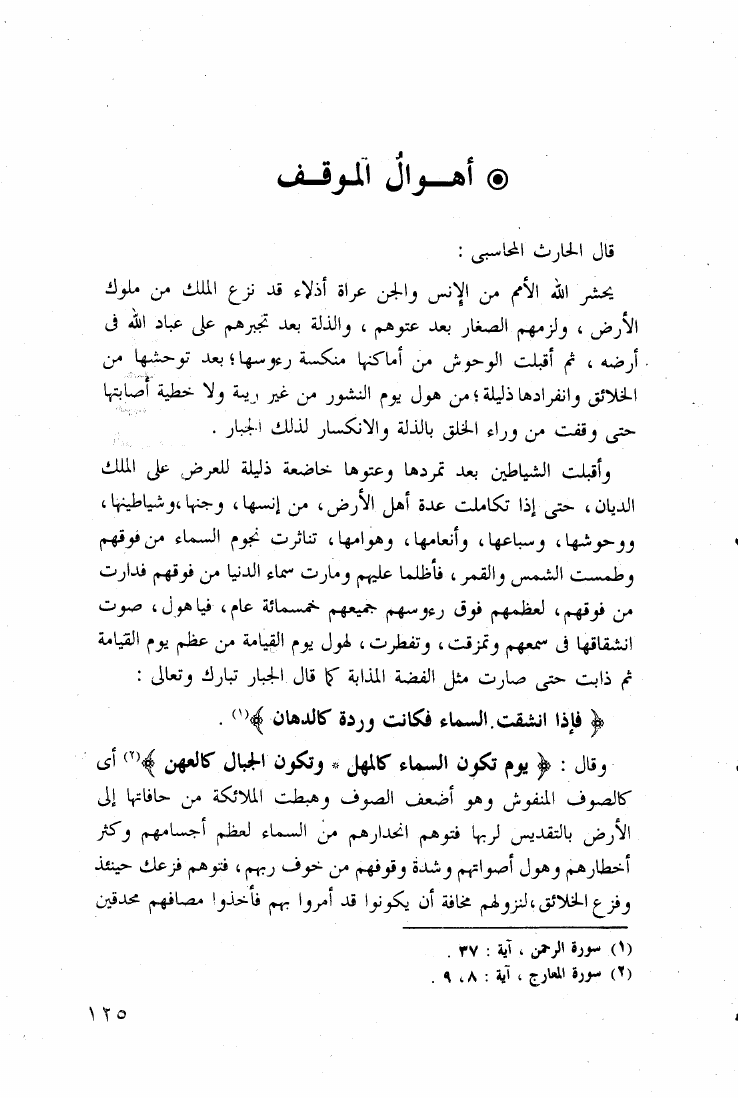 ◉ أهــوالُ الموقـف
قال الحارث المحاسبى :
يحشر الله الأمم من الإنس والجن عراة أذلاء قد نزع الملك من ملوك
الأرض ، ولزمهم الصغار بعد عتوهم ، والذلة بعد تجبرهم على عباد الله فى
أرضه ، ثم أقبلت الوحوش من أماكنها منكسة رءوسها؛ بعد توحشها من
الخلائق وانفرادها ذليلة؛ من هول يوم النشور من غير ريبة ولا خطية أصابتها
حتى وقفت من وراء الخلق بالذلة والانكسار لذلك الجبار .
وأقبلت الشياطين بعد تمردها وعتوها خاضعة ذليلة للعرض على الملك
الديان ، حتى إذا تكاملت عدة أهل الأرض، من إنسها، وجنها، وشياطينها،
ووحوشها، وسباعها، وأنعامها، وهوامها، تناثرت نجوم السماء من فوقهم
وطمست الشمس والقمر، فأظلما عليهم ومارت سماء الدنيا من فوقهم فدارت
من فوقهم، لعظمهم فوق رءوسهم جميعهم خمسمائة عام، فيا هول، صوت
انشقاقها فى سمعهم وتمزقت، وتفطرت، لهول يوم القيامة من عظم يوم القيامة
ثم ذابت حتى صارت مثل الفضة المذابة كما قال الجبار تبارك وتعالى :
﴿ فإذا انشقت السماء فكانت وردة كالدهان ﴾(١) .
وقال : ﴿ يوم تكون السماء كالمهل * وتكون الجبال كالعهن ﴾(٢) أى
كالصوف المنفوش وهو أضعف الصوف وهبطت الملائكة من حافاتها إلى
الأرض بالتقديس لربها فتوهم انحدارهم من السماء لعظم أجسامهم وكثر
أخطارهم وهول أصواتهم وشدة وقوفهم من خوف ربهم، فتوهم فزعك حينئذ
وفزع الخلائق، لنزولهم مخافة أن يكونوا قد أمروا بهم فأخذوا مصافهم محدقين
(١) سورة الرحمن ، آية : ٣٧ .
(٢) سورة المعارج ، آية : ٨ ، ٩ .
١٢٥